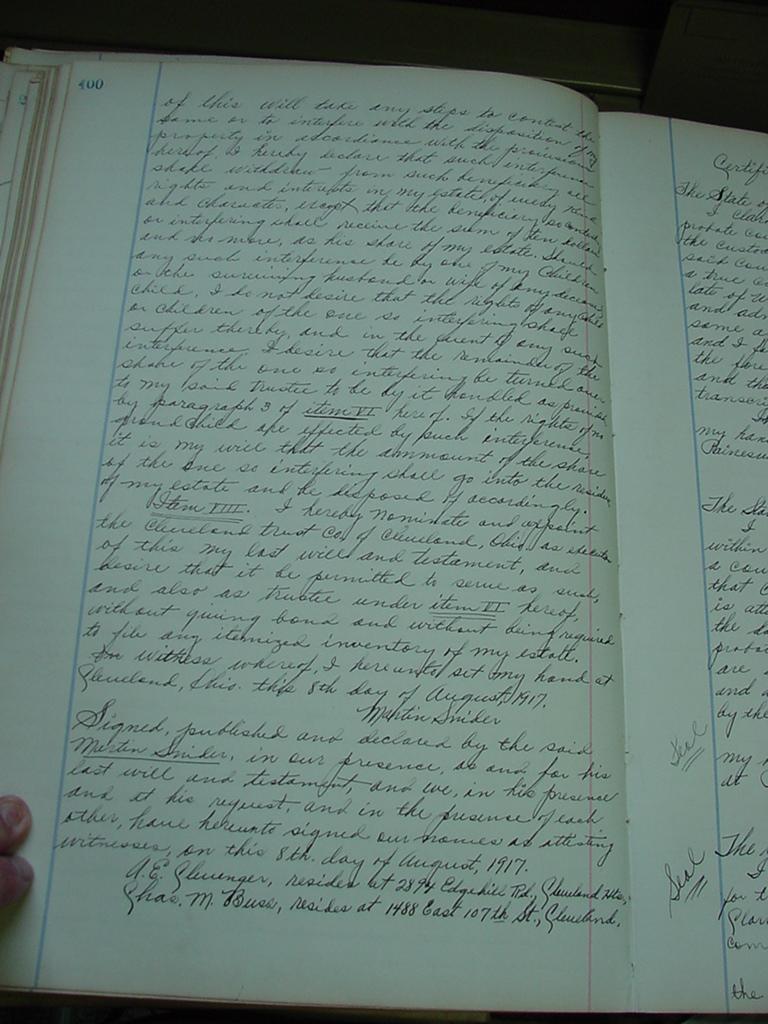 400
of this will take any steps to contest the
same or to interfere with the disposition of my
property in accordance with the provisions
hereof, I hereby declare that such interference
shall withdraw from such beneficiary all
rights and interests in my estate, of every kind
and character, except that the beneficiary so contesting
or interfering shall receive the sum of ten dollars
and no more, as his share of my estate. Should
any such interference be by one of my Children
or the surviving husband or wife of any deceased
child, I do not desire that the rights of any child
or children of the one so interfering shall
suffer thereby, and in the event of any such
interference I desire that the remainder of the
share of the one so interfering be turned over
to my said trustee to be by it handled as provided
by paragraph 3 of item VI hereof. If the rights of no
grand child are effected by such interference
it is my will that the ammount of the share
of the one so interfering shall go into the residue
of my estate and be disposed of accordingly.
Item VIII. I hereby nominate and appoint
the Cleveland trust Co, of Cleveland, Ohio. as executor
of this my last will and testament, and
desire that it be permitted to serve as such,
and also as trustee under item VI hereof,
without giving bond and without being required
to file any itemized inventory of my estate.
In Witness whereof, I hereunto set my hand at
Cleveland, Ohio. this 8th day of August, 1917.
Martin Snider
Signed, published and declared by the said
Martin Snider, in our presence, as and for his
last will and testament, and we, in his presence
and at his request, and in the presence of each
other, have hereunto signed our names as attesting
witnesses, on this 8th. day of August, 1917.
A. E. Clevenger, resides at 2894 Edgehill Rd., Cleveland Hts,
Chas. M. Buss, resides at 1488 East 107th St., Cleveland.
Certifi
The State o
I Clar
probate Cou
the custod
said Cou
a true co
late of W
and adm
same a
and I f
the fore
and tha
transcri
my han
Painesv
The Sta
I
within
a cou
that C
is att
the d
proba
are
and
by the
Seal
my h
at
Seal
The
I
for t
Clar
com
the